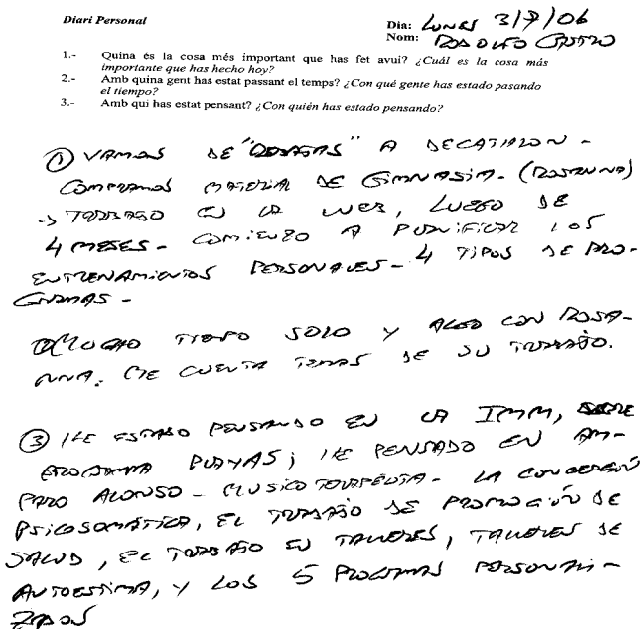 Diari Personal
Dia: LUNES 3/7/06
Nom: RODOLFO CASTRO
1.- Quina és la cosa més important que has fet avui? ¿Cuál es la cosa más
importante que has hecho hoy?
2.- Amb quina gent has estat passant el temps? ¿Con qué gente has estado pasando
el tiempo?
3.- Amb qui has estat pensant? ¿Con quién has estado pensando?
① VAMOS DE " " A DECATHLON -
COMPRAMOS MATERIAL DE GIMNASIA. (ROSANNA)
-> TRABAJO EN LA WEB, LUEGO DE
4 MESES - COMIENZO A PLANIFICAR LOS
ENTRENAMIENTOS PERSONALES - 4 TIPOS DE PRO-
GRAMAS -
② MUCHO TIEMPO SOLO Y ALGO CON ROSA-
NNA. ME CUENTA TEMAS DE SU TRABAJO.
③ HE ESTADO PENSANDO EN LA IMM,
PROGRAMA PLAYAS; HE PENSADO EN AM-
PARO ALONSO - MUSICOTERAPEUTA - LA CONCEPCIÓN
PSICOSOMÁTICA, EL TRABAJO DE PROMOCIÓN DE
SALUD, EL TRABAJO EN TALLERES, TALLERES DE
AUTOESTIMA, Y LOS 5 PROGRAMAS PERSONALI-
ZADOS